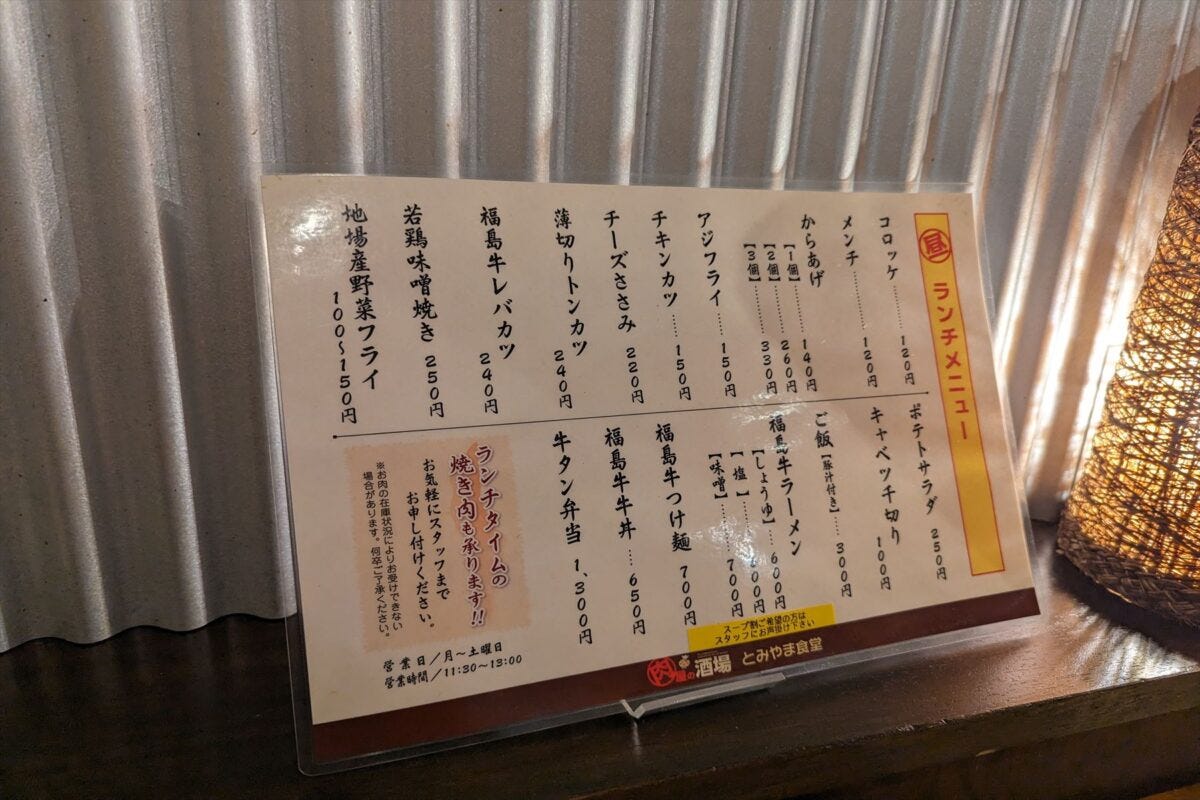 昼 ランチメニュー
コロッケ……120円
メンチ……120円
からあげ
【1個】……140円
【2個】……260円
【3個】……330円
アジフライ……150円
チキンカツ……150円
チーズささみ 220円
薄切りトンカツ 240円
福島牛レバカツ 240円
若鶏味噌焼き 250円
地場産野菜フライ 100〜150円
ポテトサラダ 250円
キャベツ千切り 100円
ご飯【豚汁付き】……300円
福島牛ラーメン
【しょうゆ】……600円
【塩】……600円
【味噌】……700円
福島牛つけ麺 700円
福島牛牛丼…650円
牛タン弁当 1,300円
ランチタイムの
焼き肉も承ります!!
お気軽にスタッフまで
お申し付けください。
※お肉の在庫状況によりお受けできない
場合があります。何卒ご了承ください。
営業日/月〜土曜日
営業時間/11:30〜13:00
スープ割ご希望の方は
スタッフにお声掛け下さい
肉屋の酒場 とみやま食堂